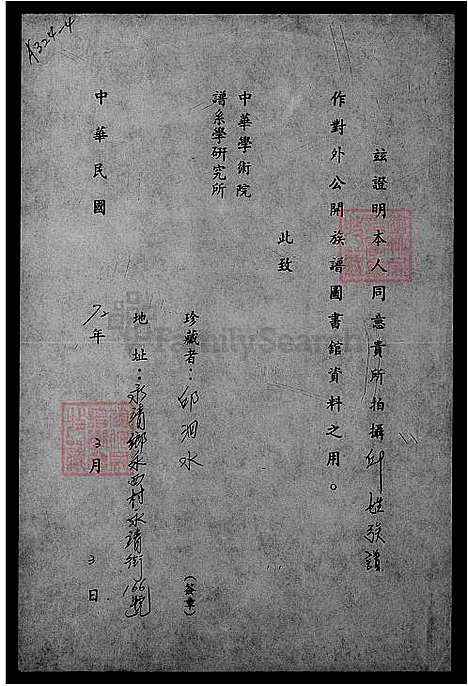 A324-4
玆證明本人同意貴所拍攝邱姓族譜
作對外公開族譜圖書館資料之用。
此致
中華學術院
譜系學研究所
珍藏者：邱泗水（簽章）
地址：永靖鄉永西村永靖街166號
中華民國 72年 3月 3日
FamilySearch